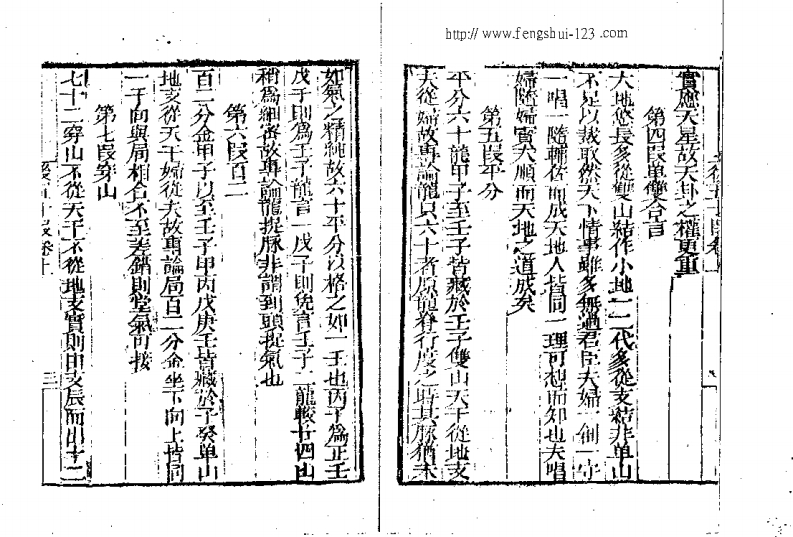 http://www.fengshui-123.com
實應天星故天卦之權更重
第四叚單雙合言
大地悠長多從雙山結作小地一二代多從支結非單山
不足以裁取然天下情事雖多無過君臣夫婦一個一守
一唱一隨輔佐而成天地人皆同一理可想而知也夫唱
婦隨婦賓夫順而天地之道成矣
第五叚平分
平分六十龍甲子至壬子皆藏於壬子雙山天干從地支
夫從婦故專論龍只六十者原龍脊行度之時其脉猶未
如氣之精純故六十平分以格之如一壬也丙子為正壬
戊子則為壬子龍言一戊子則免言壬子二龍較廿四山
稍為細密故專論龍捉脉非謂到頭捉氣也
第六叚百二
百二分金甲子以至壬子甲丙戊庚壬皆藏於子癸单山
地支從天干婦從夫故專論局百二分金坐下向上皆同
一子向與局相合不至差錯則堂氣可接
第七叚穿山
七十二穿山不從天干不從地支實則由支辰而出十二